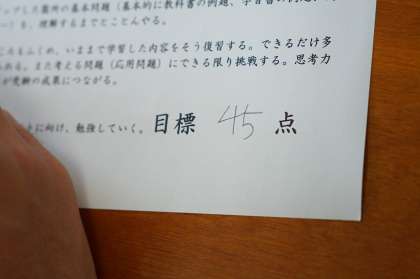 ップした箇所の基本問題（基本的に教科書の例題、学習書の例題
も、理解するまでとことんやる。
ともふくめ、いままで学習した内容をそう復習する。できるだけ多
れる。また考える問題（応用問題）にできる限り挑戦する。思考力
が受験の成果につながる。
に向け、勉強していく。目標 45 点